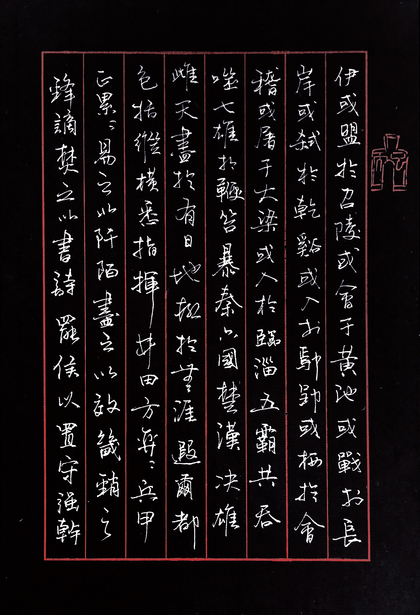 伊或盟於召陵或會于黄池或戰於長
岸或弒於乾谿或入於郢或栖於會
稽或屠于大梁或入於臨淄五霸共吞
噬七雄於鞭笞暴秦六國楚漢決雄
雌天盡於有日地極於無涯遐爾都
包括縱橫悉指揮井田方兵甲
正累〻易之以阡陌畫之以畿銷之
鋒謫焚之以書詩罷侯以置守强幹